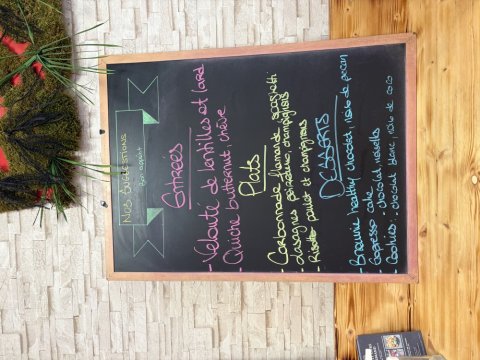 Nos suggestions
Bon appétit
Entrées
- Velouté de lentilles et lard
- Quiche butternut, chèvre
Plats
- Carbonnade flamande spaghetti
- Lasagnes poireaux, champignons
- Risotto poulet et champignons
DESSERTS
- Brownie healthy chocolat, noix de pécan
- Espresso cake
- Cookies : - chocolat noisettes
- chocolat blanc, noix de coco